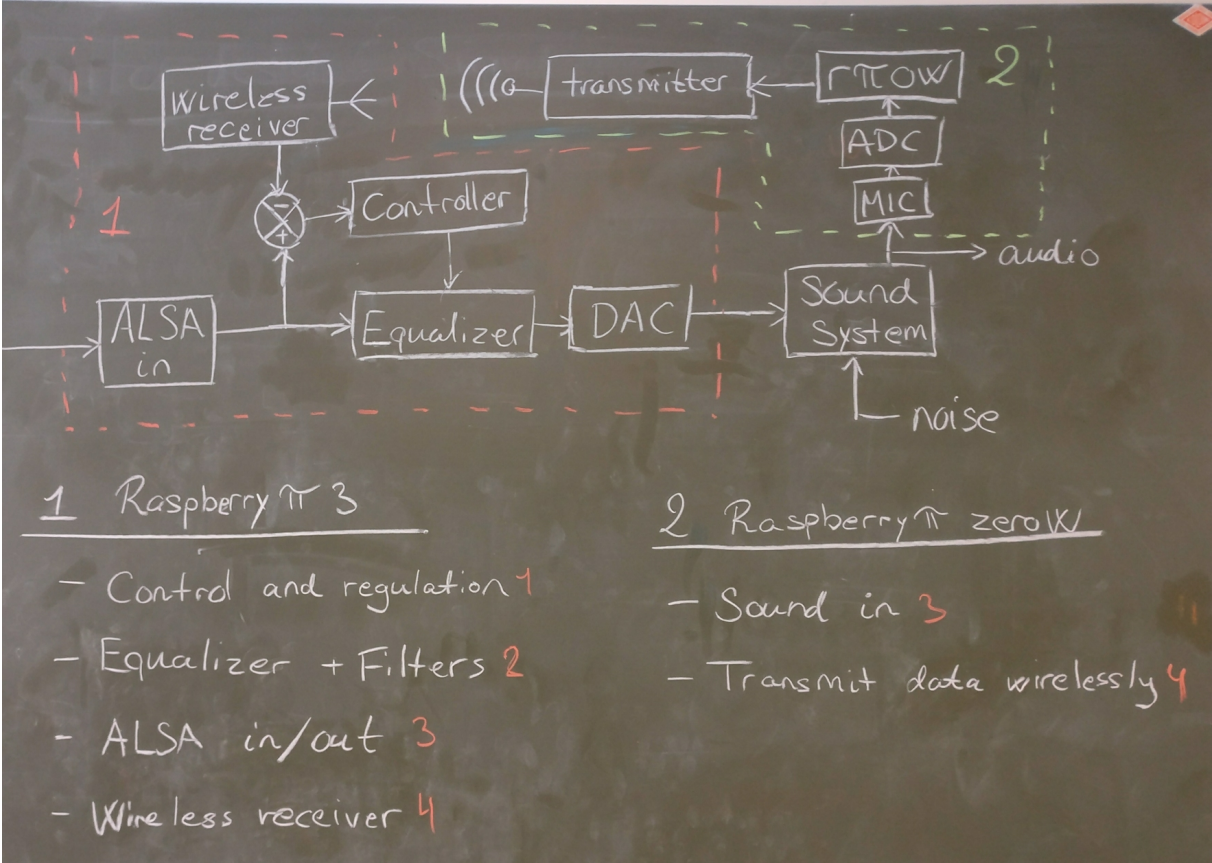 wireless
receiver
transmitter
rπ0W
2
ADC
MIC
1
-
+
Controller
audio
ALSA
in
Equalizer
DAC
Sound
System
noise
1 Raspberry π 3
- Control and regulation 1
- Equalizer + Filters 2
- ALSA in/out 3
- Wireless receiver 4
2 Raspberry π zero W
- Sound in 3
- Transmit data wirelessly 4